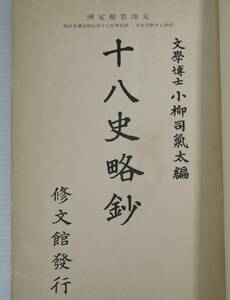 文部省檢定濟
文學博士 小柳司氣太編
十八史略鈔
修文館發行